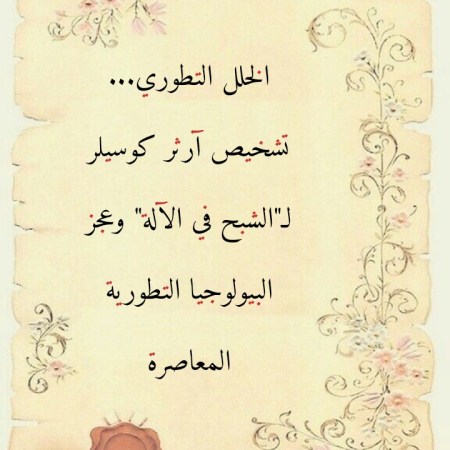 الخلل التطوري...
تشخيص آرثر كوسيلر
لـ"الشبح في الآلة" وعجز
البيولوجيا التطورية
المعاصرة